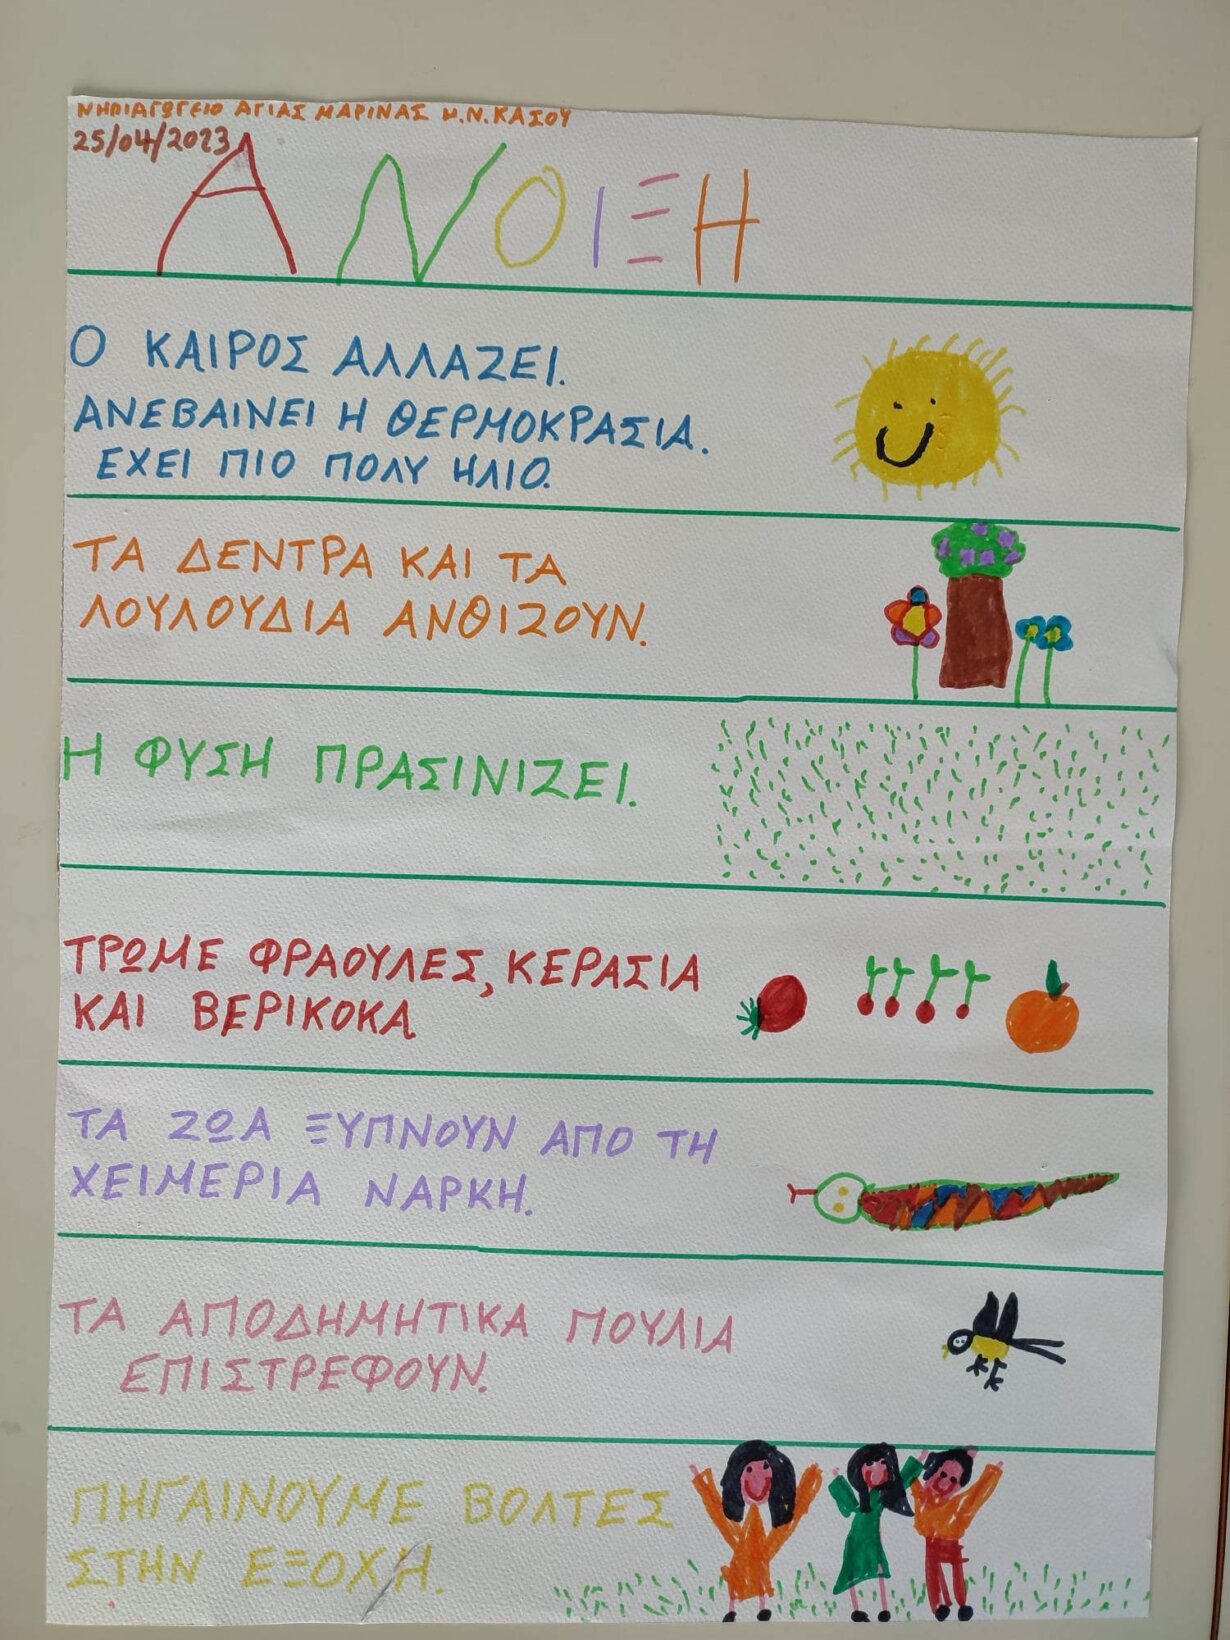 ΝΗΠΙΑΓΩΓΕΙΟ ΑΓΙΑΣ ΜΑΡΙΝΑΣ Η.Ν.ΚΑΣΟΥ
25/04/2023
ΑΝΟΙΞΗ
Ο ΚΑΙΡΟΣ ΑΛΛΑΖΕΙ.
ΑΝΕΒΑΙΝΕΙ Η ΘΕΡΜΟΚΡΑΣΙΑ.
ΕΧΕΙ ΠΙΟ ΠΟΛΥ ΗΛΙΟ.
ΤΑ ΔΕΝΤΡΑ ΚΑΙ ΤΑ
ΛΟΥΛΟΥΔΙΑ ΑΝΘΙΖΟΥΝ.
Η ΦΥΣΗ ΠΡΑΣΙΝΙΖΕΙ.
ΤΡΩΜΕ ΦΡΑΟΥΛΕΣ, ΚΕΡΑΣΙΑ
ΚΑΙ ΒΕΡΙΚΟΚΑ
ΤΑ ΖΩΑ ΞΥΠΝΟΥΝ ΑΠΟ ΤΗ
ΧΕΙΜΕΡΙΑ ΝΑΡΚΗ.
ΤΑ ΑΠΟΔΗΜΗΤΙΚΑ ΠΟΥΛΙΑ
ΕΠΙΣΤΡΕΦΟΥΝ.
ΠΗΓΑΙΝΟΥΜΕ ΒΟΛΤΕΣ
ΣΤΗΝ ΕΞΟΧΗ.